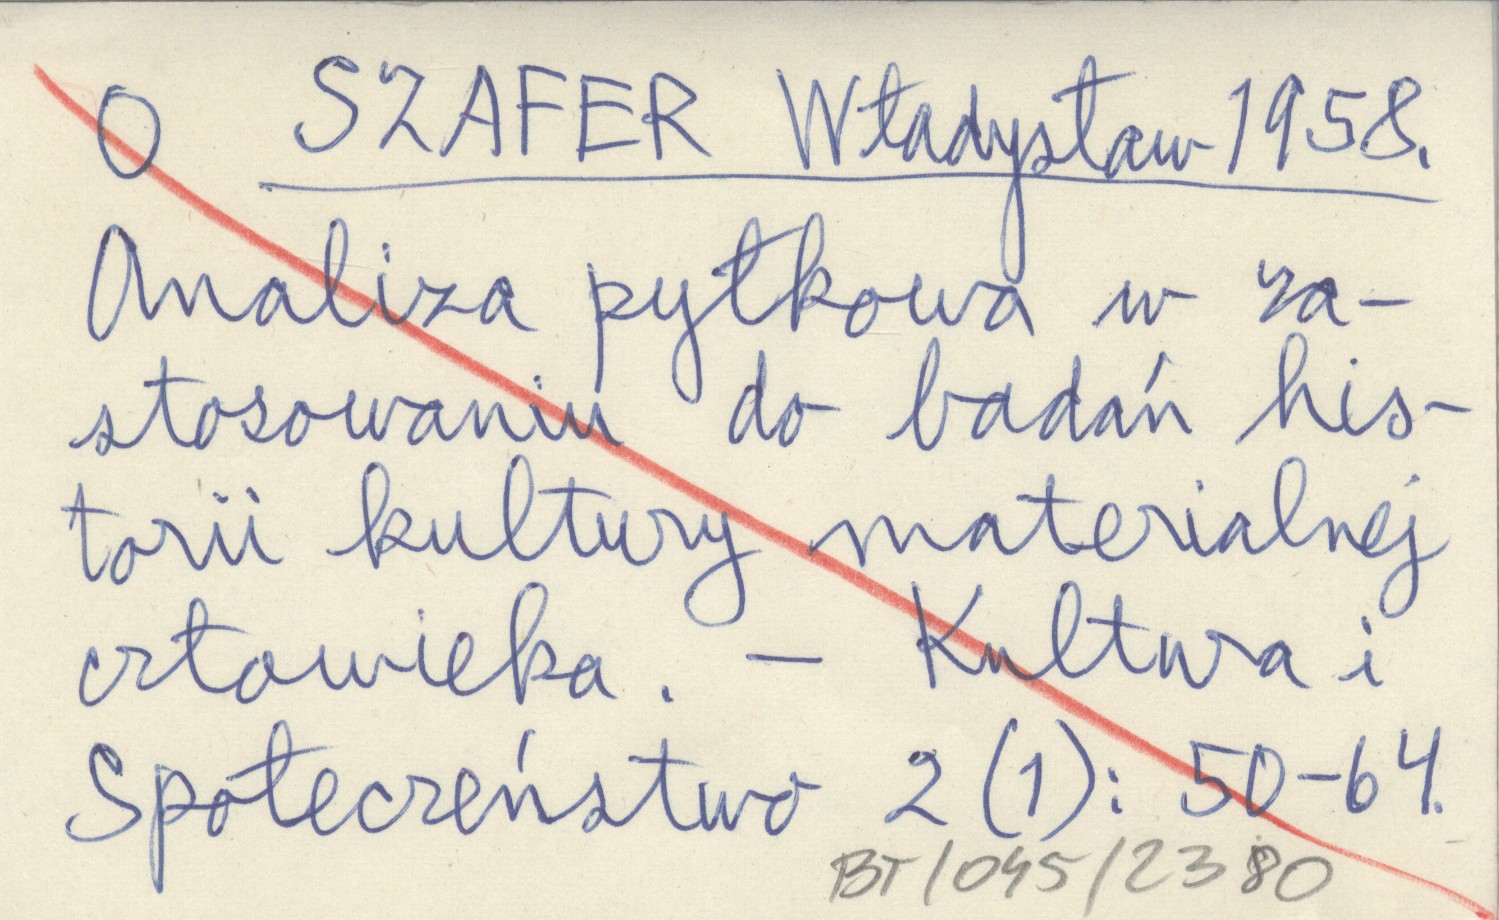 O SZAFER Władysław 1958.
Analiza pyłkowa w za-
stosowaniu do badań his-
torii kultury materialnej
człowieka. — Kultura i
Społeczeństwo 2 (1): 50-64.
BT/045/2380